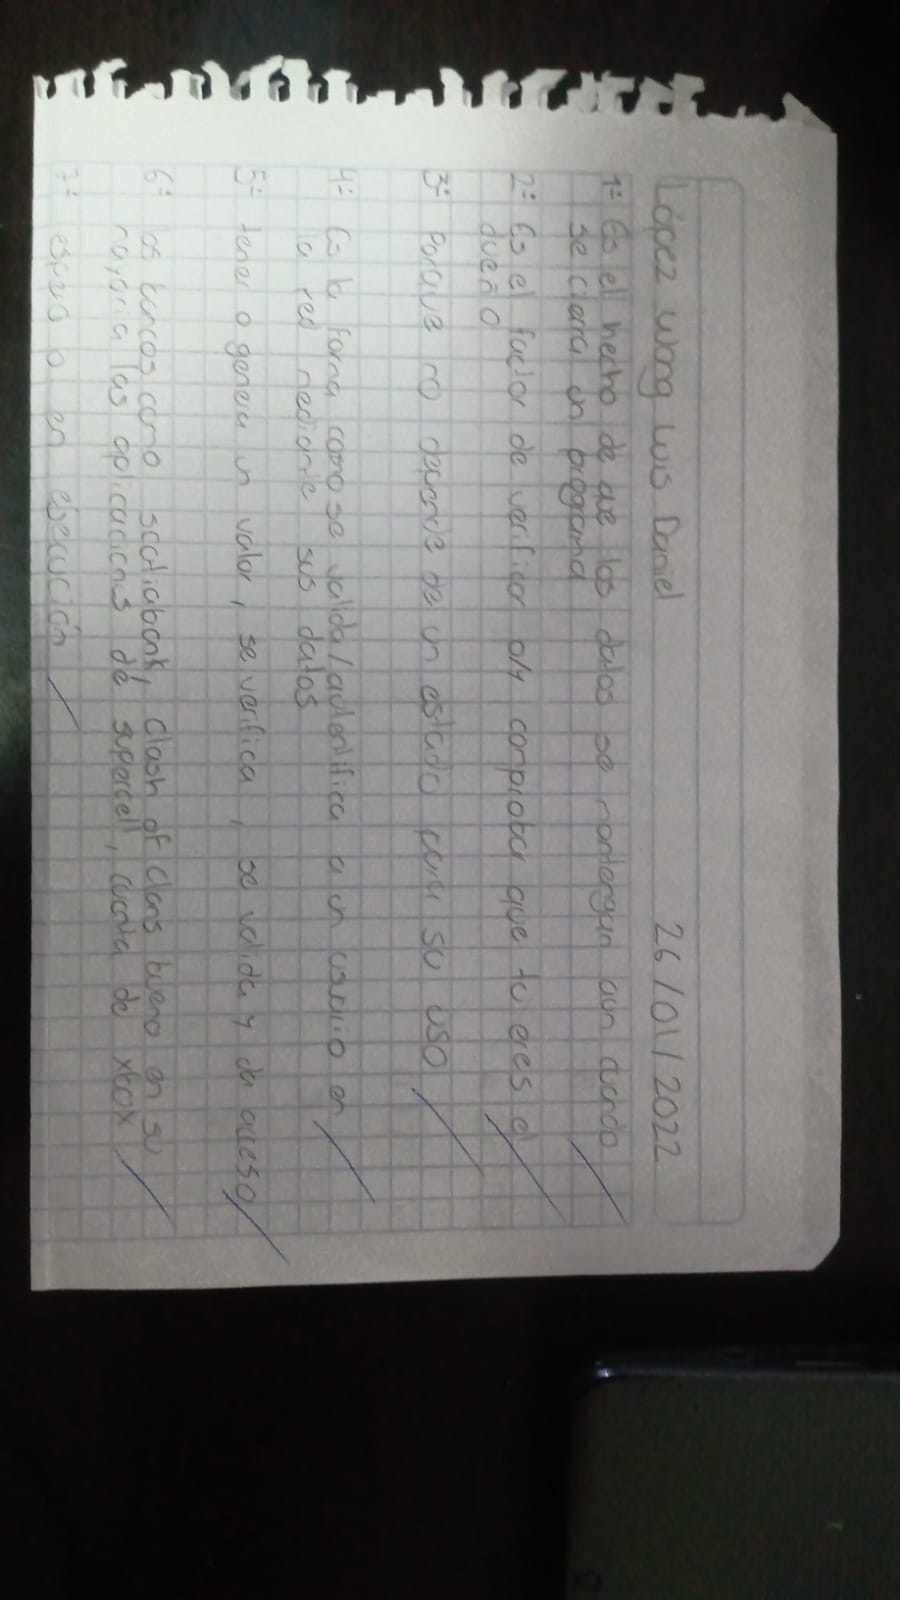 López Wong Luis Daniel 26/01/2022
1- Es el hecho de que los datos se mantengan aun cuando
se cierra un programa
2- Es el factor de verificar o/y comprobar que tu eres el
dueño
3- Porque no depende de un estado para su uso
4- Es la forma como se valida/autentifica a un usuario en
la red mediante sus datos
5- tener o genera un valor, se verifica, se valida y da acceso
6- los bancos como scotiabank, Clash of Clans bueno en su
mayoria las aplicaciones de supercell, cuenta de xbox
7- espera o en ejecución